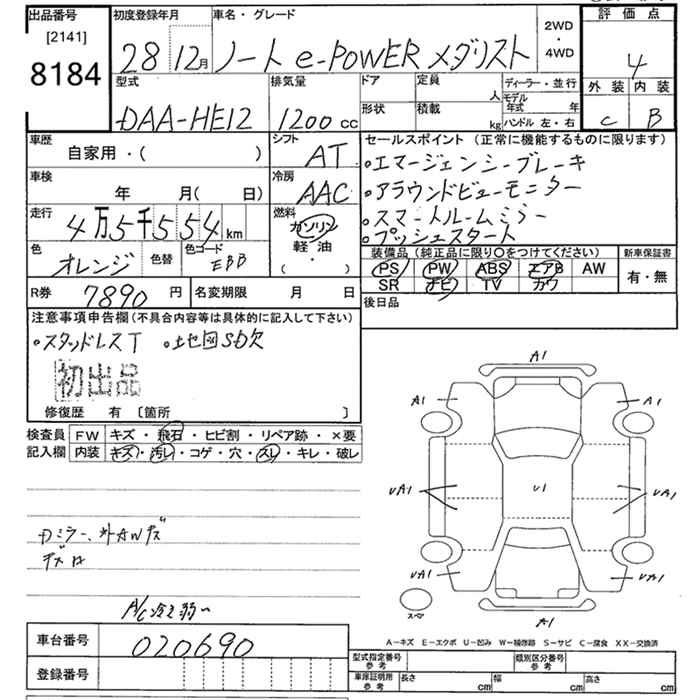 出品番号
[2141]
8184
初度登録年月
28 12月
車名・グレード
ノート e-POWER メダリスト
2WD
・
4WD
評価点
4
外装 内装
C B
型式
DAA-HE12
排気量
1200 cc
ドア
定員
人
形状
積載
kg
ディーラー・並行
モデル年式 年
ハンドル 左・右
車歴
自家用・( )
シフト
AT
車検
年 月( 日)
冷房
AAC
走行
4万5千554km
燃料
ガソリン
軽油
・
( )
色
オレンジ
色替
色コード
EBB
セールスポイント (正常に機能するものに限ります)
・エマージェンシーブレーキ
・アラウンドビューモニター
・スマートルームミラー
・プッシュスタート
装備品(純正品に限り○をつけてください)
PS PW ABS エアB AW
SR ナビ TV カワ
新車保証書
有・無
R券 7890円
名変期限 月 日
後日品
注意事項申告欄(不具合内容等は具体的に記入して下さい)
・スタッドレスT ・地図SD欠
初出品
修復歴 有 〔箇所 〕
検査員
記入欄
FW キズ・飛石・ヒビ割・リペア跡・×要
内装 キズ・汚レ・コゲ・穴・スレ・キレ・破レ
Dミラー、外AWキズ
A/C冷え弱〜
A1
A1 A1
UA1 U1 UA1
UA1 UA1
スペア
A1
A-キズ E-エクボ U-凹み W-補修跡 S-サビ C-腐食 XX-交換済
車台番号 020690
登録番号
型式指定番号
参考
類別区分番号
参考
車庫証明用
参考
長さ cm
幅 cm
高さ cm